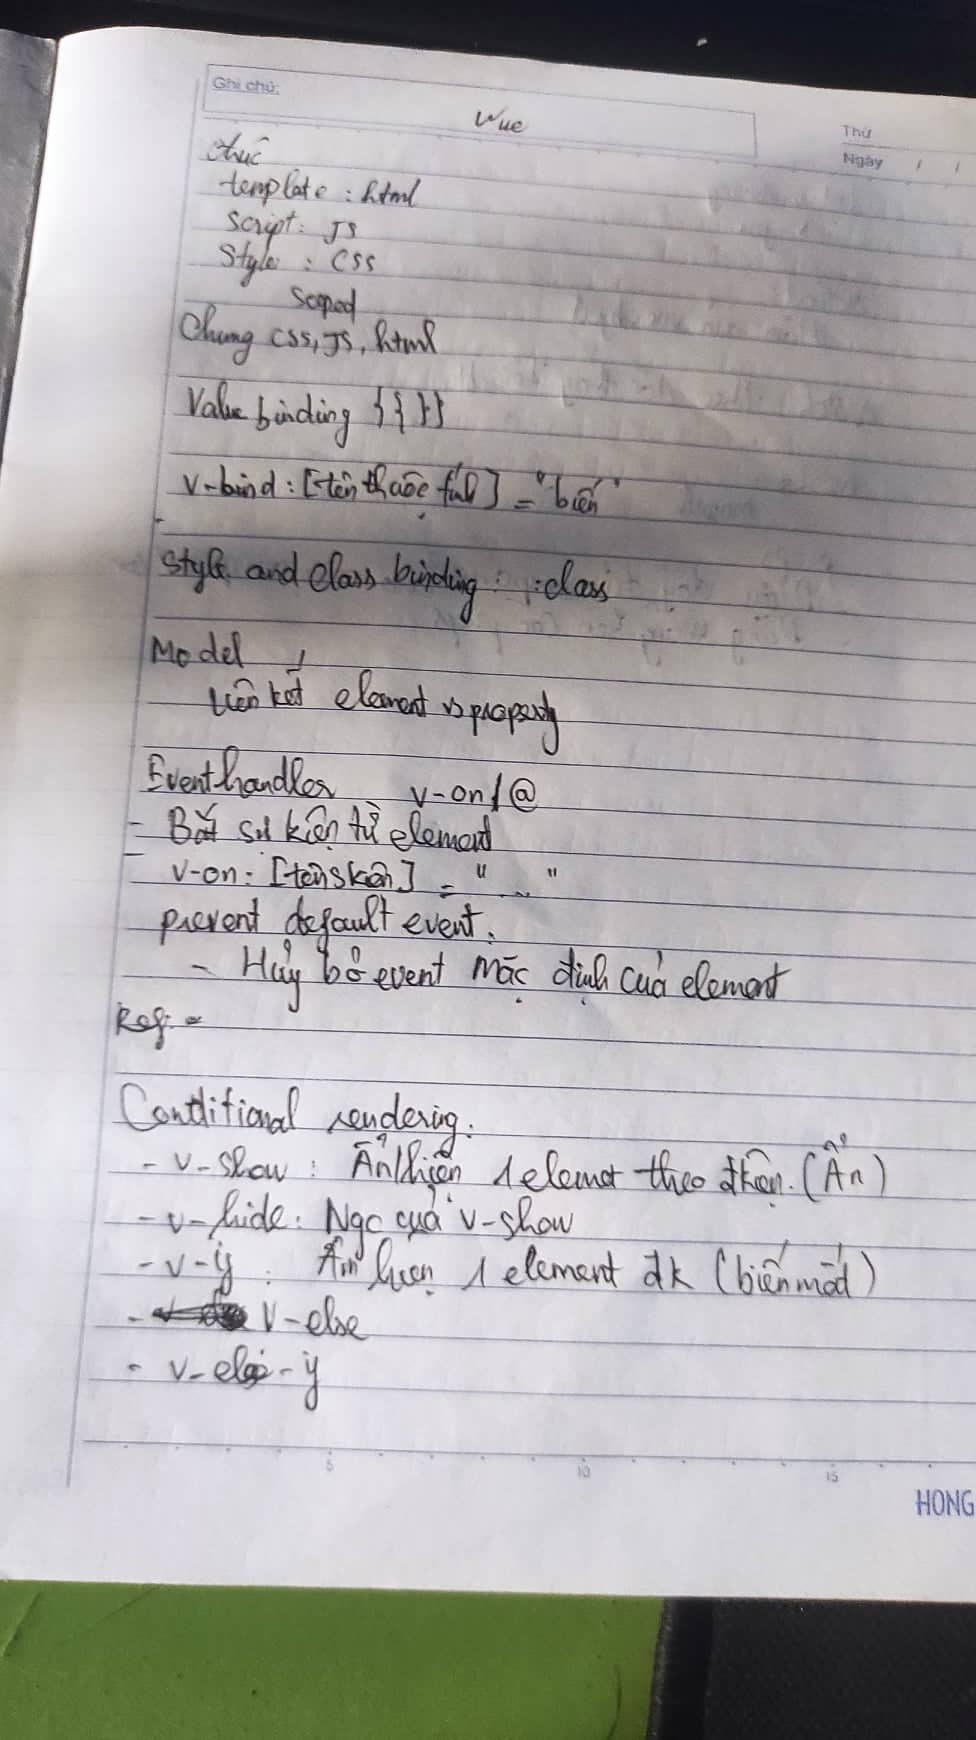 Ghi chú:
Vue
Thứ
Ngày / /
template : html
Script: JS
Style : CSS
Scoped
Chung CSS, JS, html
Value binding {{ }}
v-bind : [tên thuộc tính] = "biến"
Style and Class binding : :class
Model
Liên kết element vs property
Event handler v-on / @
- Bắt sự kiện từ element
- v-on : [tên skiện] = " ... "
prevent default event.
- Hủy bỏ event mặc định của element
Ref: -
Conditional rendering:
- v-show : Ẩn/hiện 1 elemet theo đkiện. (Ẩn)
- v-hide : Ngc của v-show
- v-if : Ẩn hiện 1 element đk (biến mất)
- v-else
- v-else-if
5 10 15
HONG